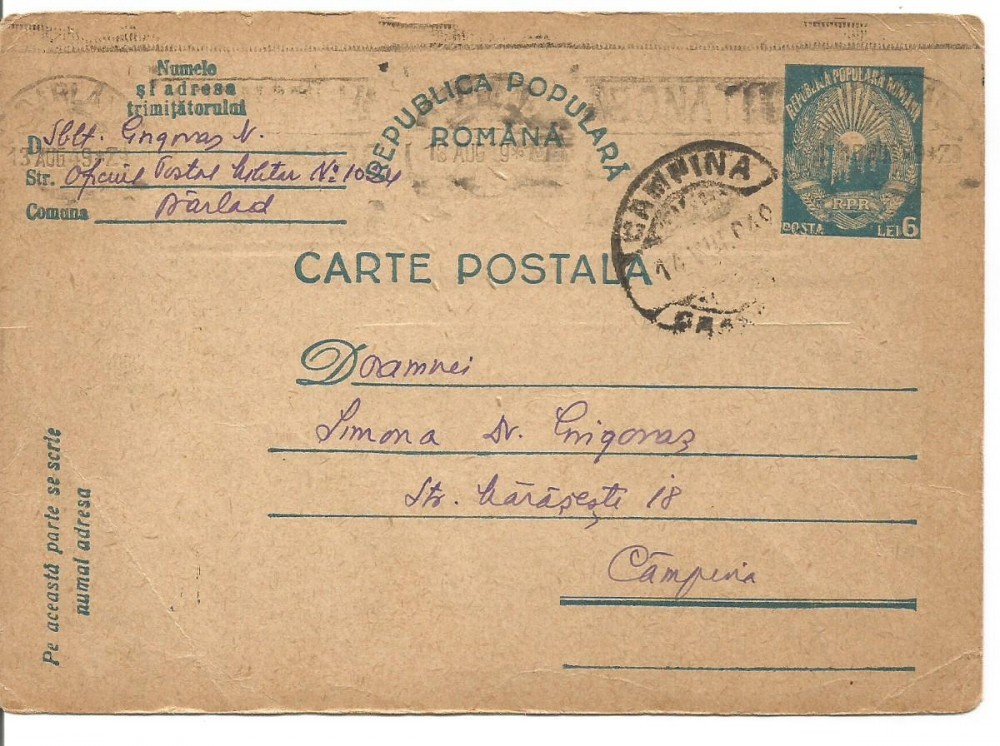 Numele
și adresa
trimițătorului
D Sblt. Grigoraș V.
Str. Oficiul Postal Militar No 1024
Comuna Bârlad
REPUBLICA POPULARĂ
ROMÂNĂ
13 AUG 49
13 AUG 9
REPUBLICA POPULARA ROMANA
R·P·R
POSTA LEI 6
CAMPINA
14 VIII 949
CARTE POSTALA
Doamnei
Simona Dr. Grigoraș
Str. Mărășești 18
Câmpina
Pe această parte se scrie
numai adresa